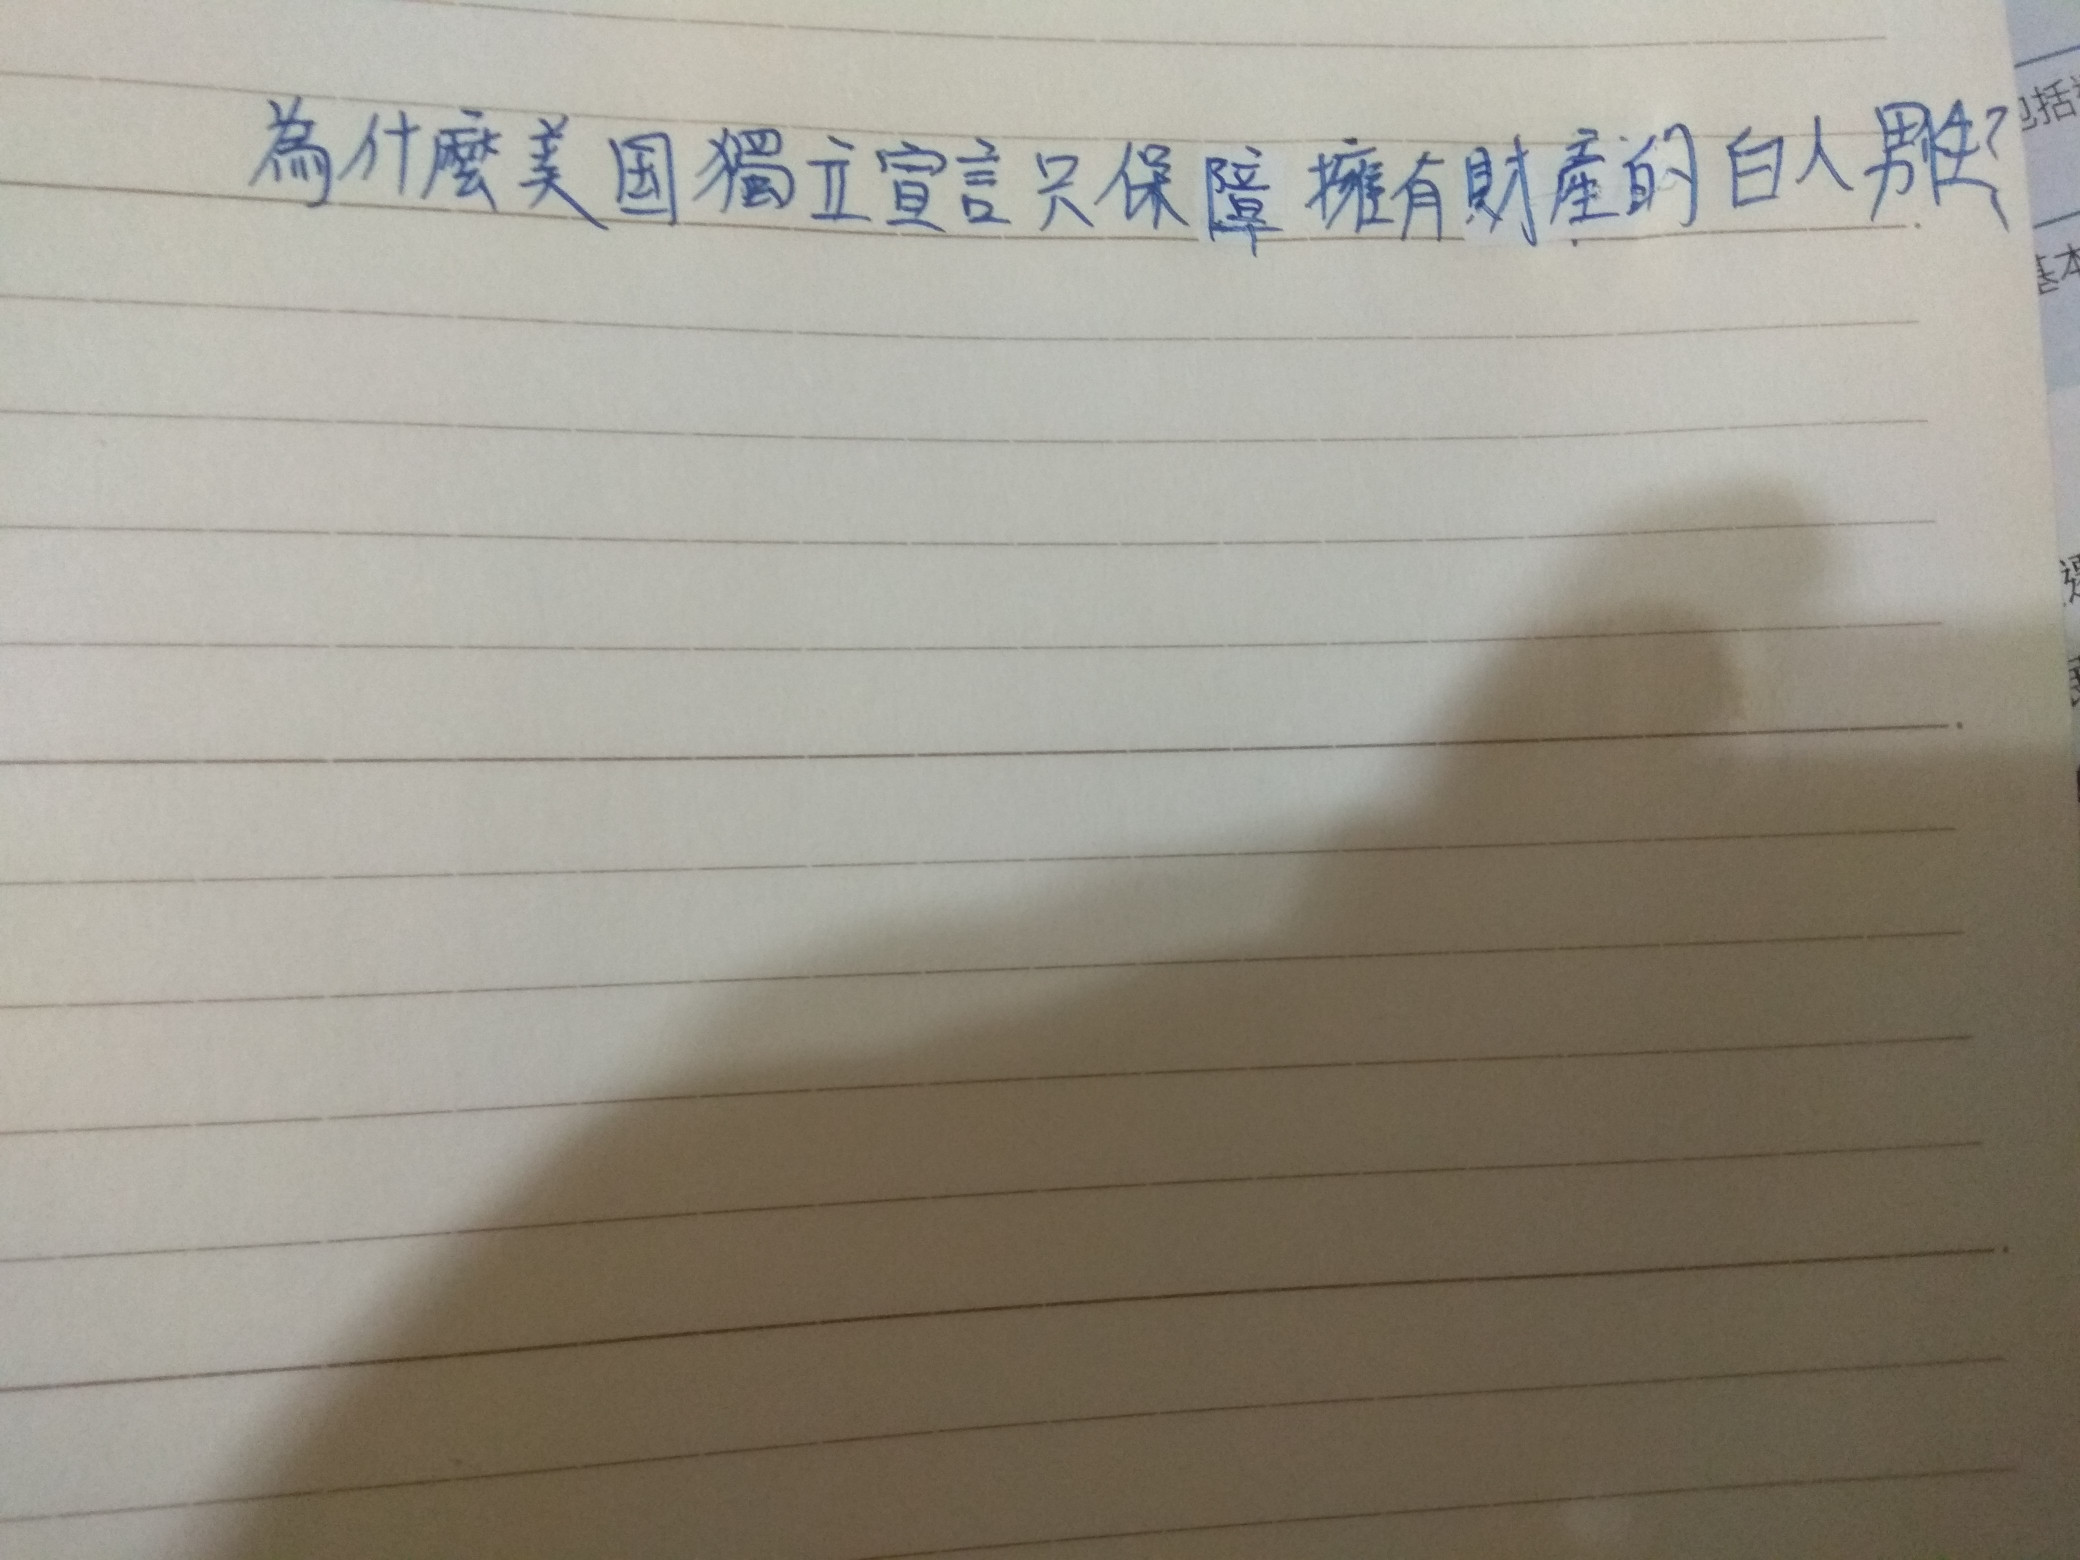 為什麼美国獨立宣言只保障擁有財產的白人男性?
包括
基本